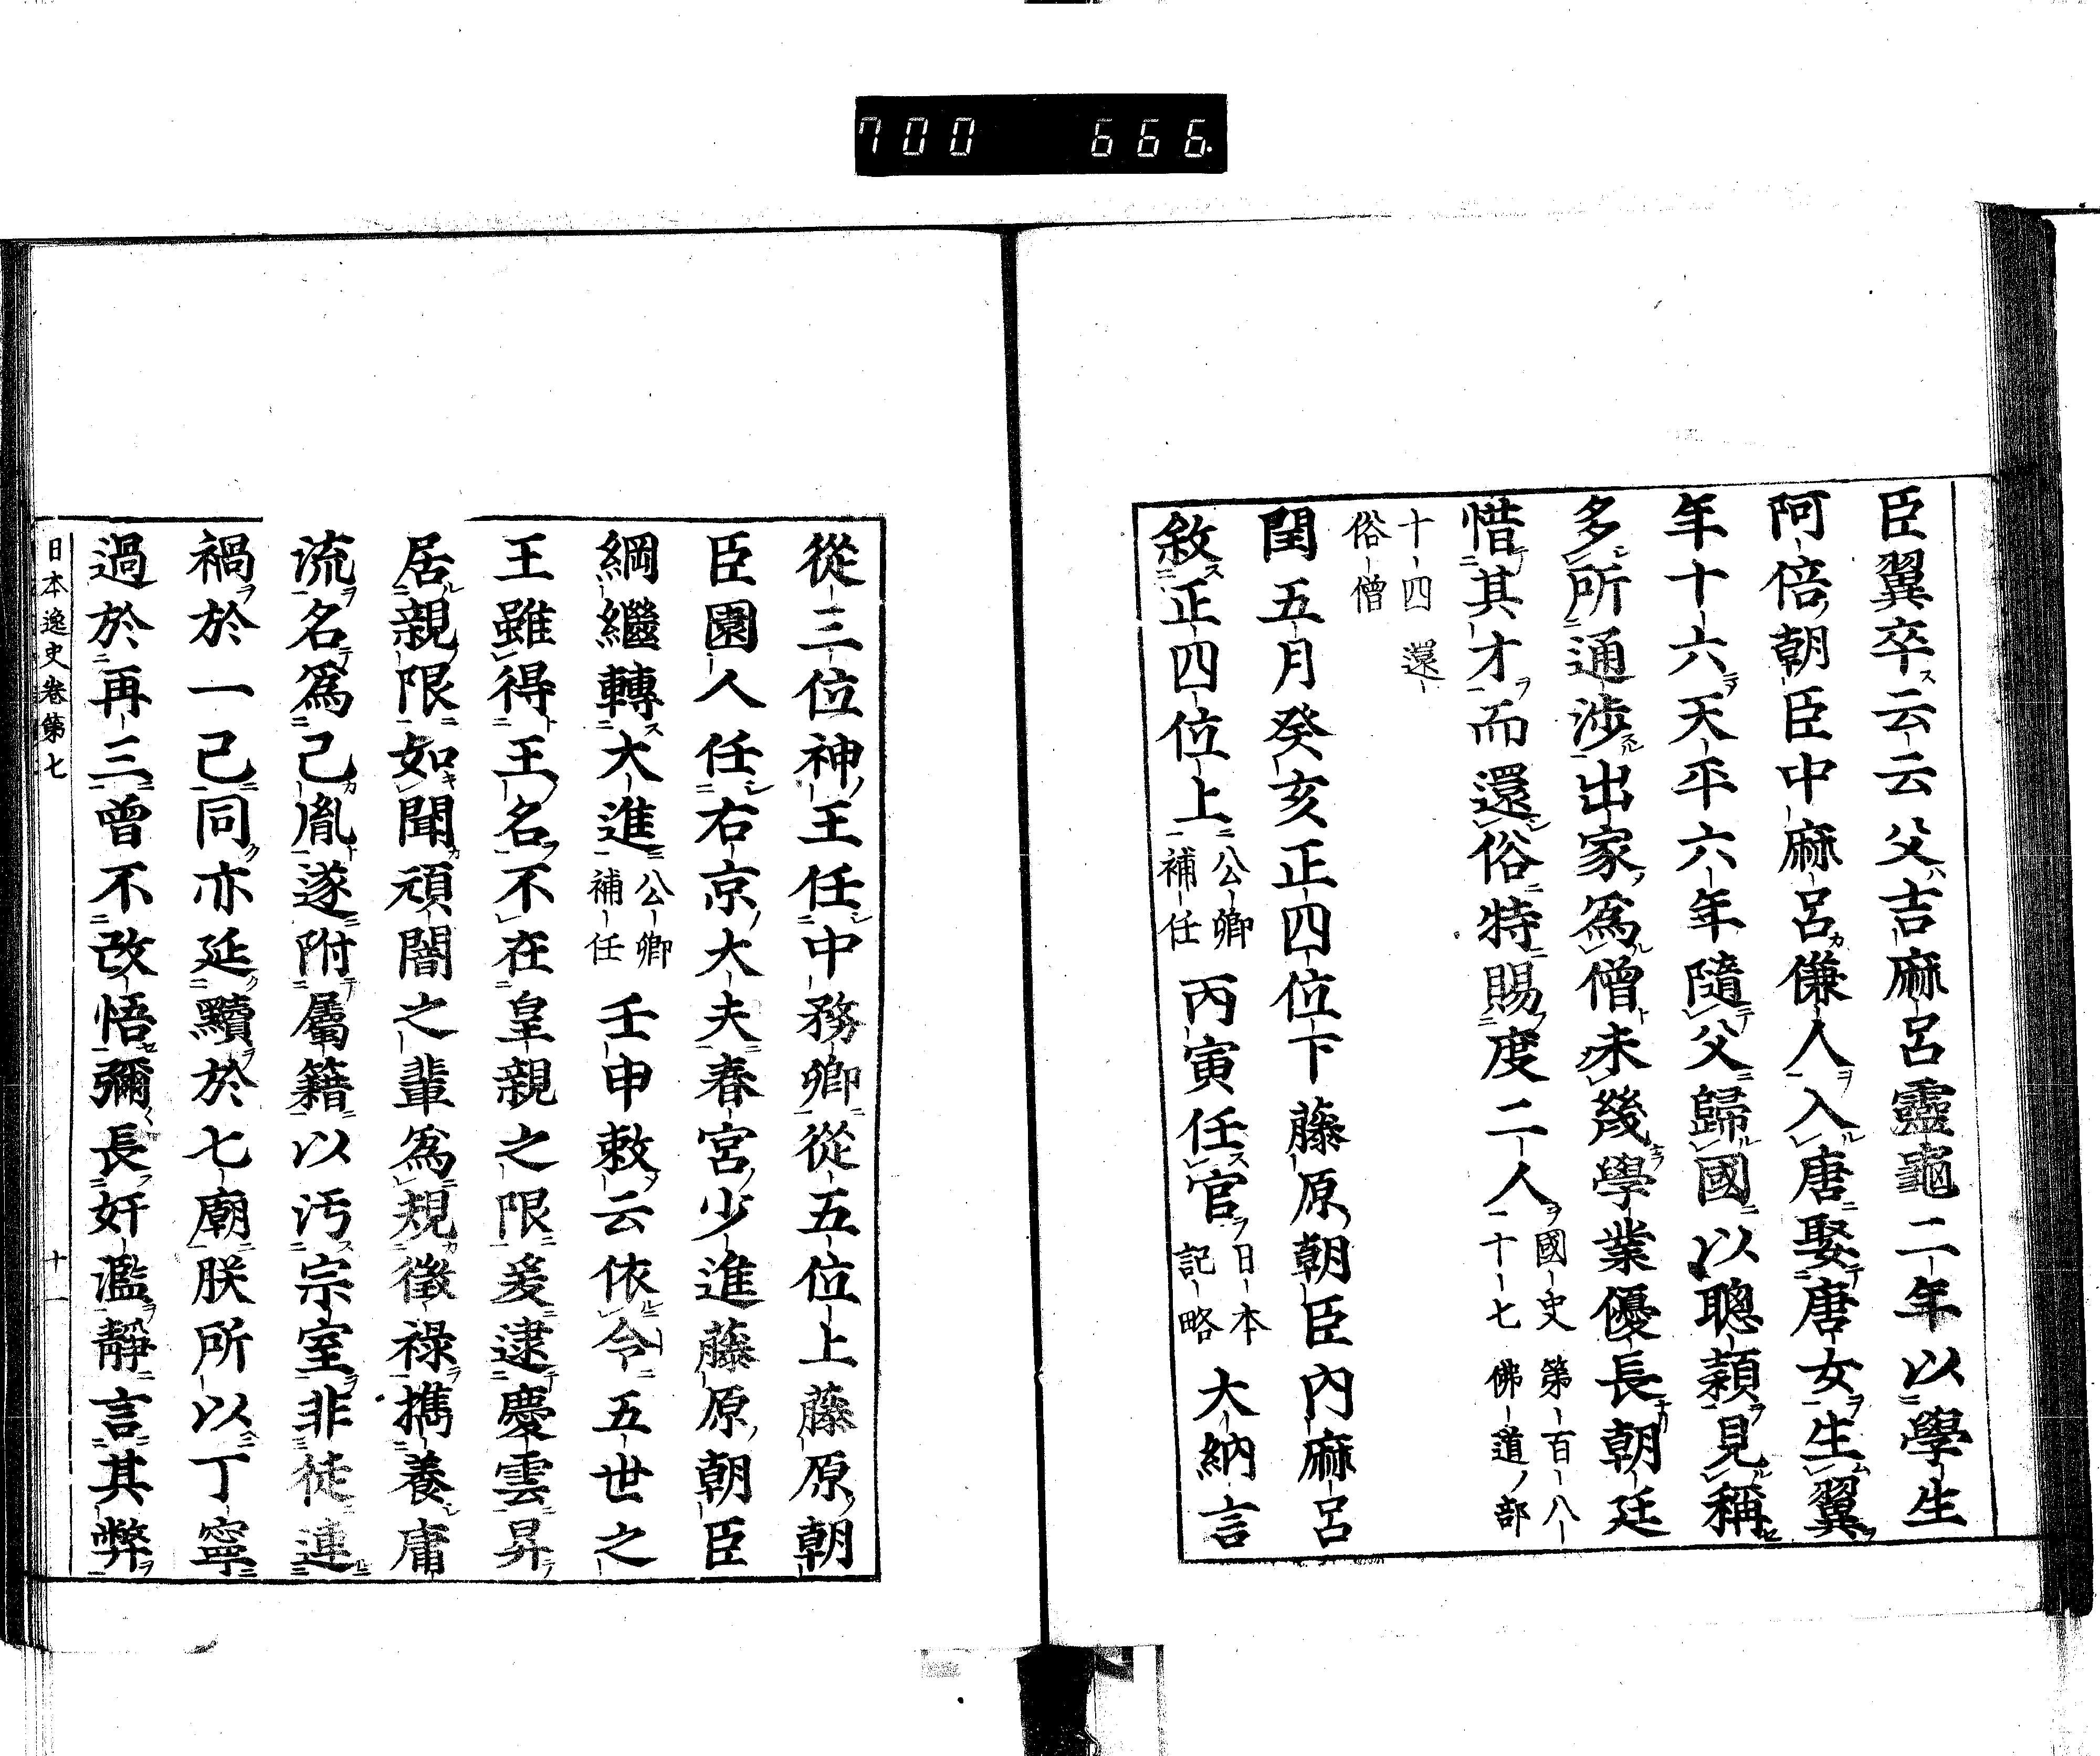 700 666
臣翼卒云云父吉麻呂靈龜二年以學生
阿倍朝臣中麻呂傔人入唐娶唐女生翼
年十六天平六年隨父歸國以聰頴見稱
多所通渉出家爲僧未幾學業優長朝廷
惜其才而還俗特賜度二人國史第百八十七佛道部
十四還俗僧
閏五月癸亥正四位下藤原朝臣內麻呂
敘正四位上公卿補任丙寅任官日本記略大納言
從三位神王任中務卿從五位上藤原朝
臣園人任右京大夫春宮少進藤原朝臣
綱繼轉大進公卿補任壬申敕云依令五世之
王雖得王名不在皇親之限爰逮慶雲昇
居親限如聞頑闇之輩爲規徵祿擕養庸
流名爲己胤遂附屬籍以汚宗室非徒連
禍於一己同亦延黷於七廟朕所以丁寧
過於再三曾不改悟彌長奸濫靜言其弊
日本逸史卷第七 十一